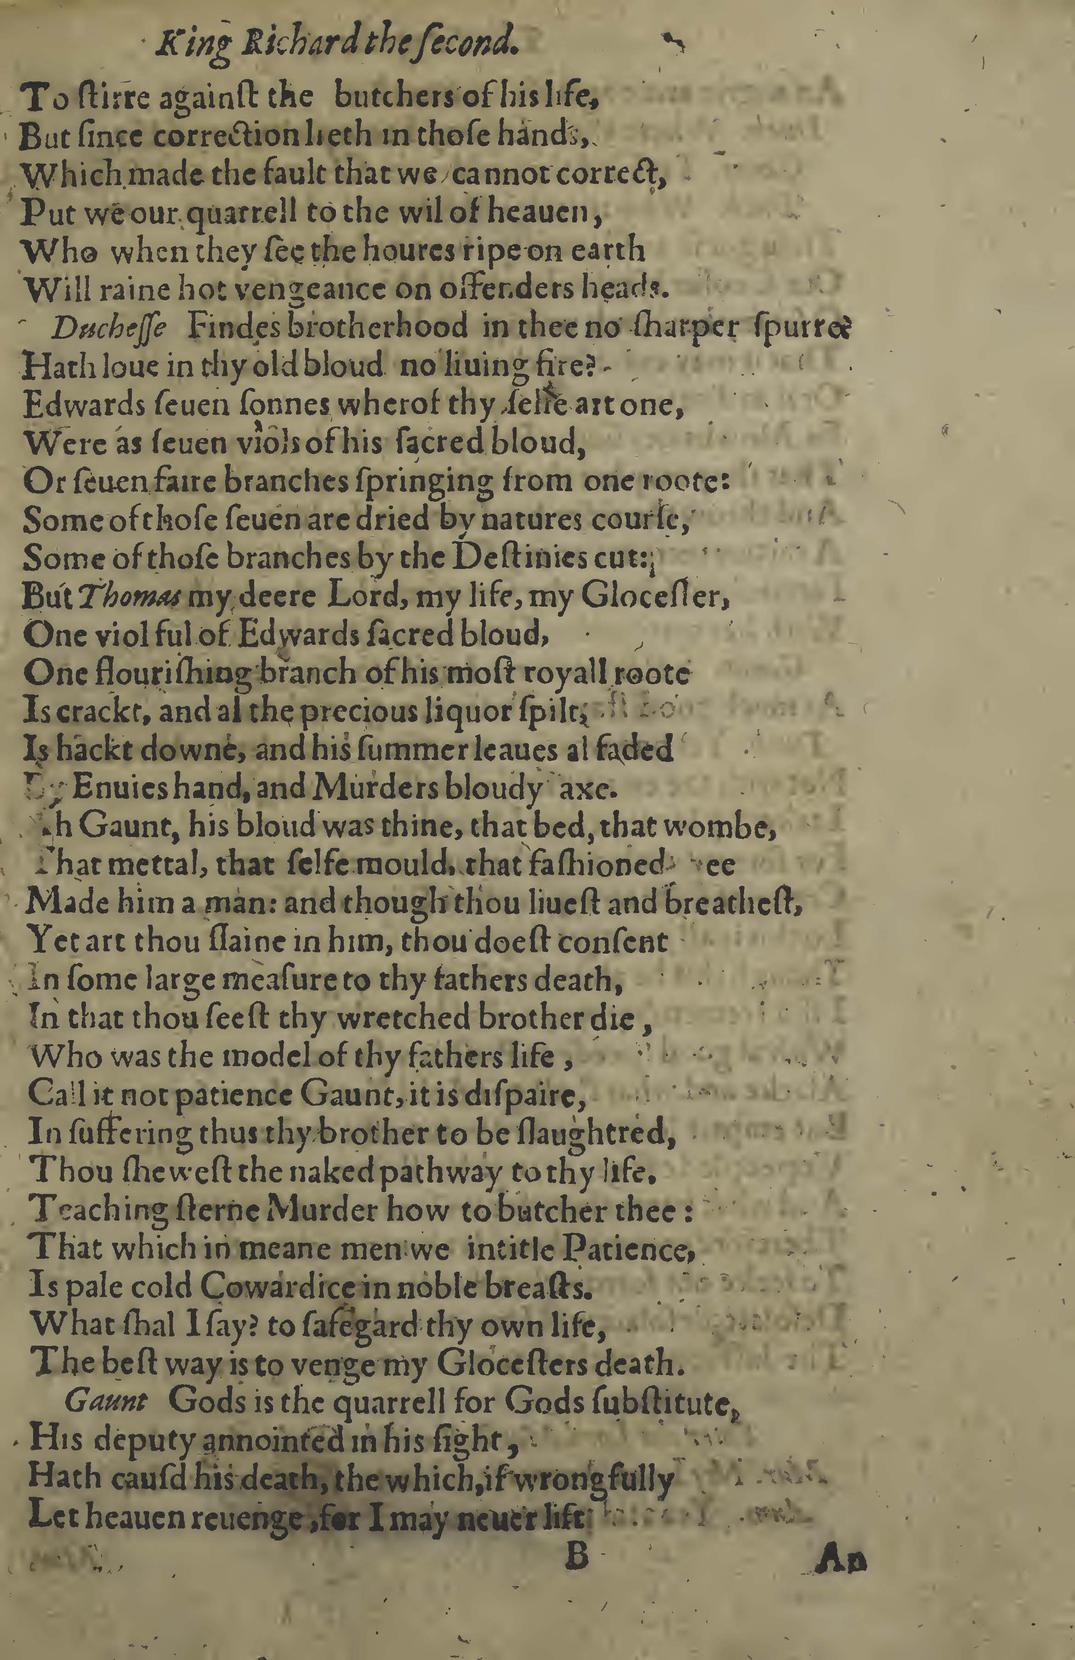 King Richard the ſecond.
To ſtirre againſt the butchers of his life,
But ſince correction lieth in thoſe hands,
Which made the fault that we cannot correct,
Put we our quarrell to the wil of heauen,
Who when they ſee the houres ripe on earth
Will raine hot vengeance on offenders heads.
Ducheſſe Findes brotherhood in thee no ſharper ſpurre?
Hath loue in thy old bloud no liuing fire?
Edwards ſeuen ſonnes wherof thy ſelfe art one,
Were as ſeuen viols of his ſacred bloud,
Or ſeuen faire branches ſpringing from one roote:
Some of thoſe ſeuen are dried by natures courſe,
Some of thoſe branches by the Deſtinies cut:
But Thomas my deere Lord, my life, my Gloceſter,
One viol ful of Edwards ſacred bloud,
One flouriſhing branch of his moſt royall roote
Is crackt, and al the precious liquor ſpilt,
Is hackt downe, and his ſummer leaues al faded
By Enuies hand, and Murders bloudy axe.
Ah Gaunt, his bloud was thine, that bed, that wombe,
That mettal, that ſelfe mould, that faſhioned ee
Made him a man: and though thou liueſt and breatheſt,
Yet art thou ſlaine in him, thou doeſt conſent
In ſome large meaſure to thy fathers death,
In that thou ſeeſt thy wretched brother die,
Who was the model of thy fathers life,
Call it not patience Gaunt, it is diſpaire,
In ſuffering thus thy brother to be ſlaughtred,
Thou ſheweſt the naked pathway to thy life.
Teaching ſterne Murder how to butcher thee:
That which in meane men we intitle Patience,
Is pale cold Cowardice in noble breaſts.
What ſhal I ſay? to ſafegard thy own life,
The beſt way is to venge my Gloceſters death.
Gaunt Gods is the quarrell for Gods ſubſtitute,
His deputy annointed in his ſight,
Hath cauſd his death, the which, if wrongfully
Let heauen reuenge, for I may neuer lift
B An